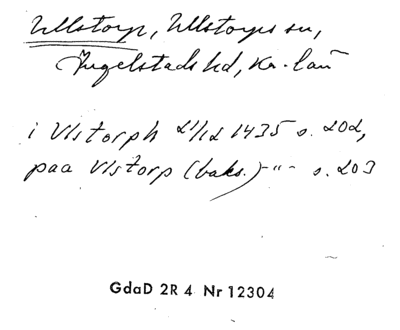 Ullstorp, Ullstorps sn,
Ingelstads hd, Kr. län
i Vlstorph 21/12 1435 s. 202,
paa Vlstorp (baks.) -"- s. 203
GdaD 2R 4 Nr 12304